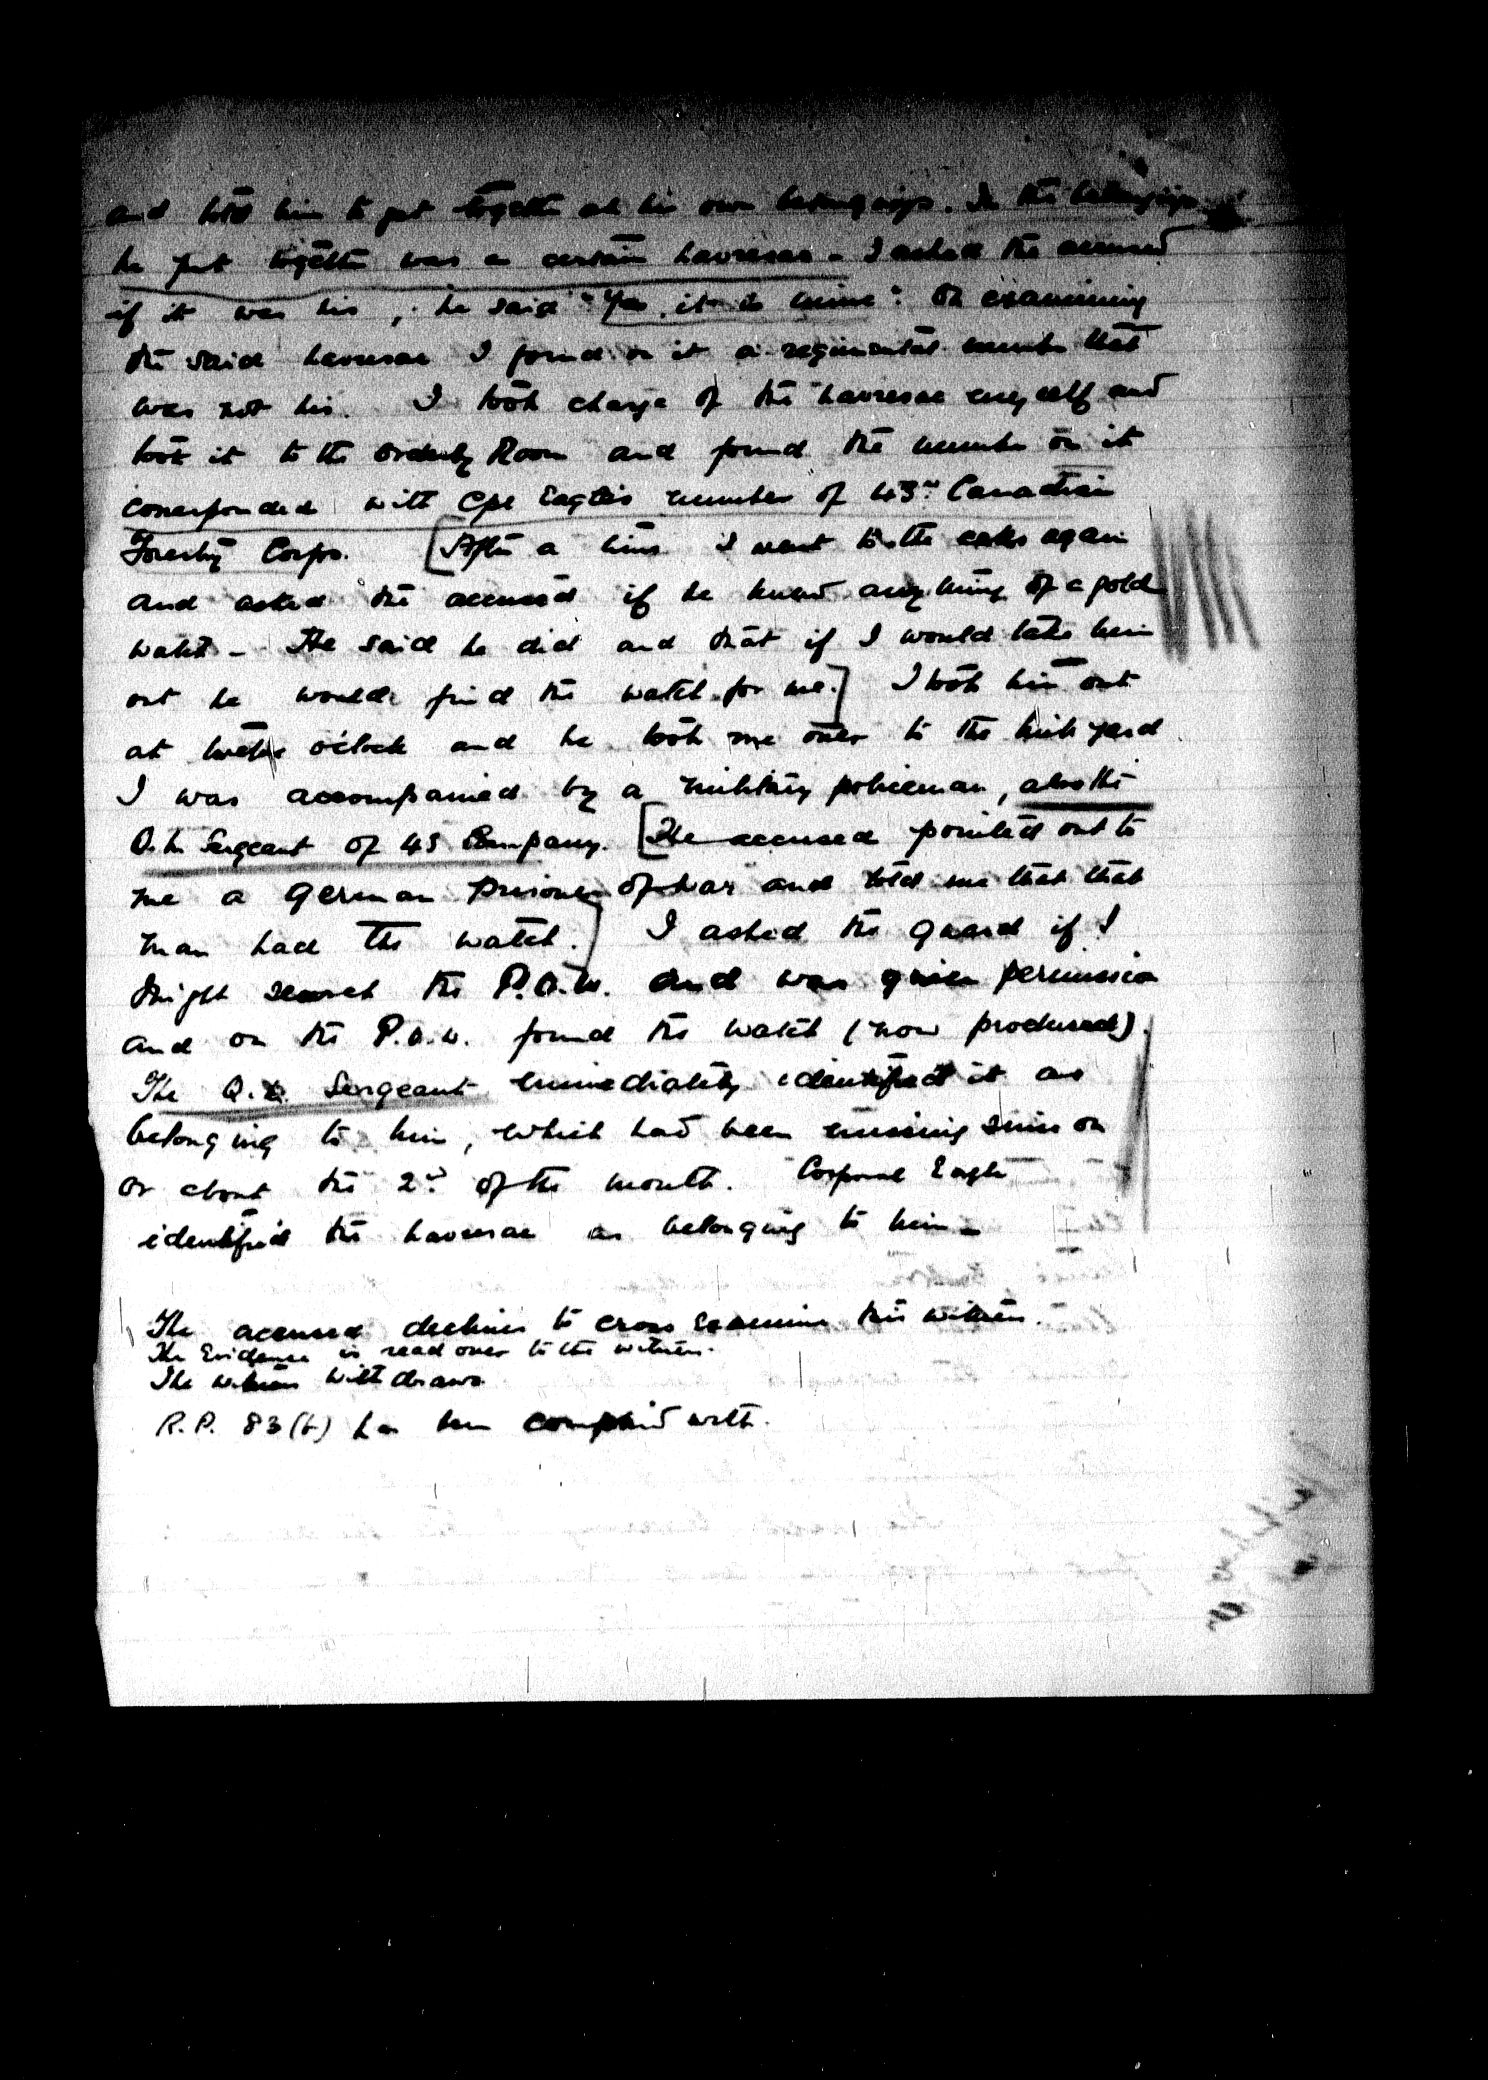 and told him to put together all his own belongings. In the belongings
he put together was a certain haversac - I asked the accused
if it was his, he said "Yes, it is mine". On examining
the said haversac I found on it a regimental number that
was not his. I took charge of the haversac myself and
took it to the Orderly Room and found the number on it
corresponded with Cpl Eagles number of 43rd Canadian
Forestry Corps. [After a time I went to the cells again
and asked the accused if he knew anything of a gold
watch - He said he did and that if I would take him
out he would find the watch for me.] I took him out
at twelve o'clock and he took me over to the yard
I was accompanied by a military policeman, also the
Sergeant of 43 Company. [The accused pointed out to
me a German Prisoner of War and told me that that
man had the watch.] I asked the guard if I
might search the P.O.W. and was given permission
and on the P.O.W. found the watch (now produced).
The Sergeant immediately identified it as
belonging to him, which had been missing since on
or about the 2nd of the month. Corporal Eagle
identified the haversac as belonging to him -
The accused declines to cross examine this witness.
The Evidence is read over to the witness.
The witness withdraws.
R.P. 83(b) has been complied with.